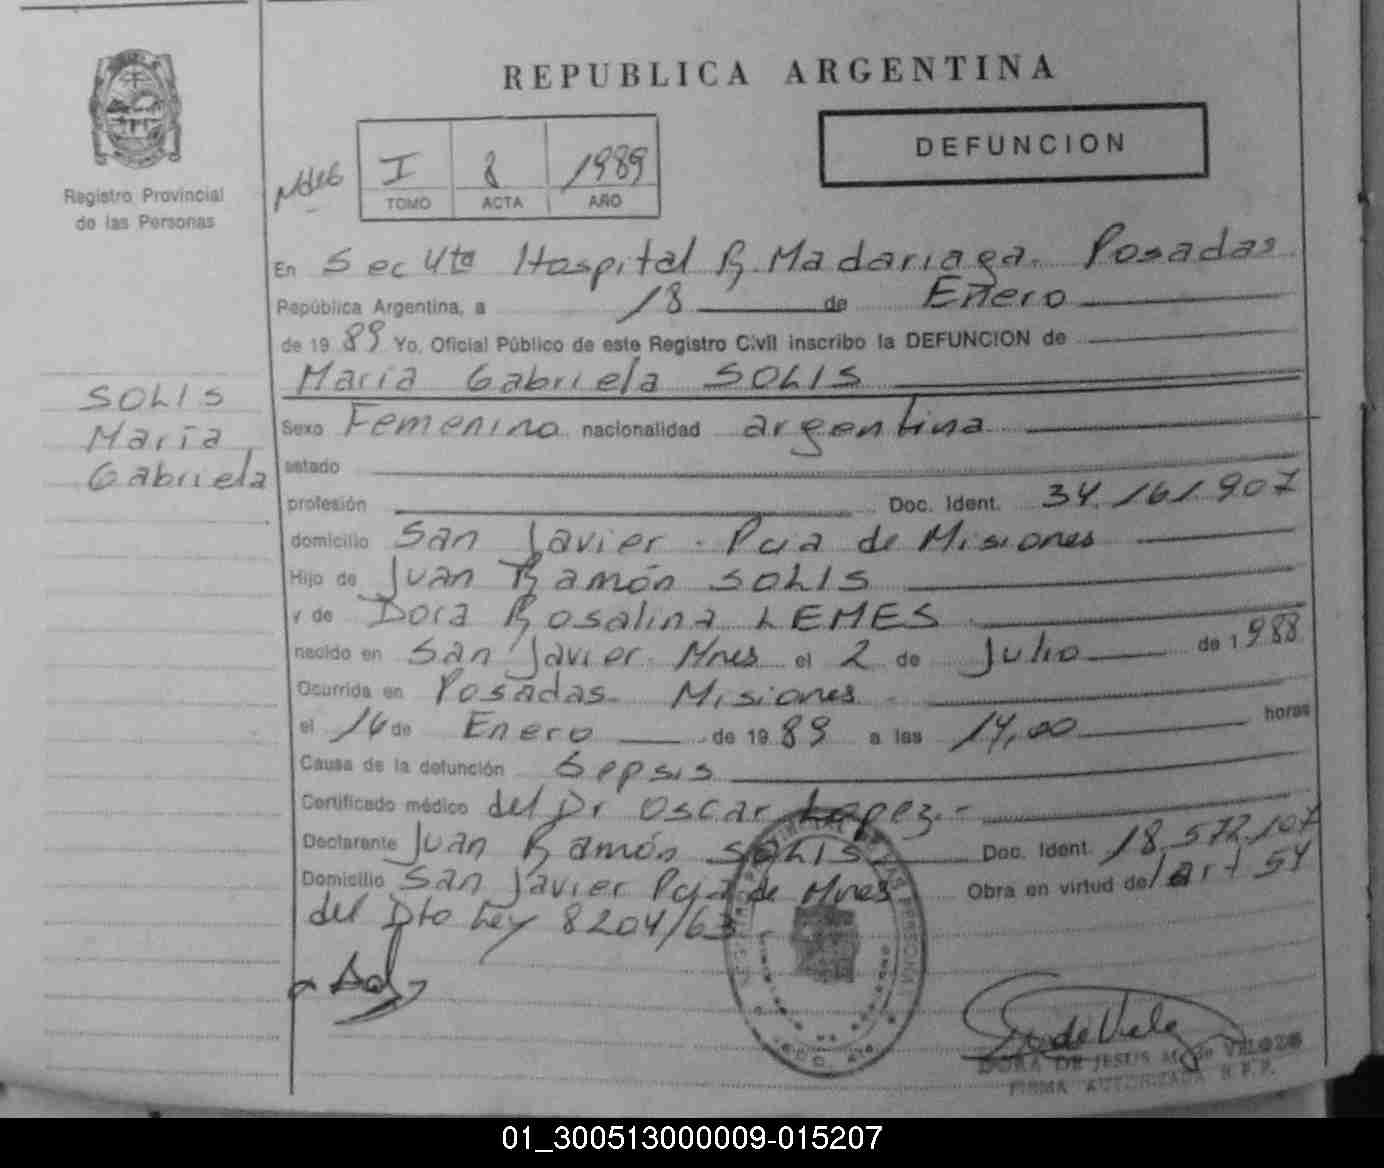 REPUBLICA ARGENTINA
DEFUNCION
Registro Provincial
de las Personas
I 8 1989
TOMO ACTA AÑO
En Sec 4ta Hospital R. Madariaga. Posadas
República Argentina, a 18 de Enero
de 1989 Yo, Oficial Público de este Registro Civil inscribo la DEFUNCION de
María Gabriela SOLIS
SOLIS
María
Gabriela
Sexo Femenino nacionalidad argentina
estado
profesión Doc. Ident. 34.161.907
domicilio San Javier. Pcia de Misiones
Hijo de Juan Ramón SOLIS
y de Dora Rosalina LEMES
nacido en San Javier Mnes el 2 de Julio de 1988
Ocurrida en Posadas Misiones
el 16 de Enero de 1989 a las 14,00 horas
Causa de la defunción Sepsis
Certificado médico del Dr Oscar Lopez.-
Declarante Juan Ramón SOLIS Doc. Ident. 18.572.107
Domicilio San Javier Pcia de Mnes Obra en virtud del art 54
del Dto Ley 8204/63
DORA DE JESUS M. de VELOZO
FIRMA AUTORIZADA R.P.P.
01_300513000009-015207